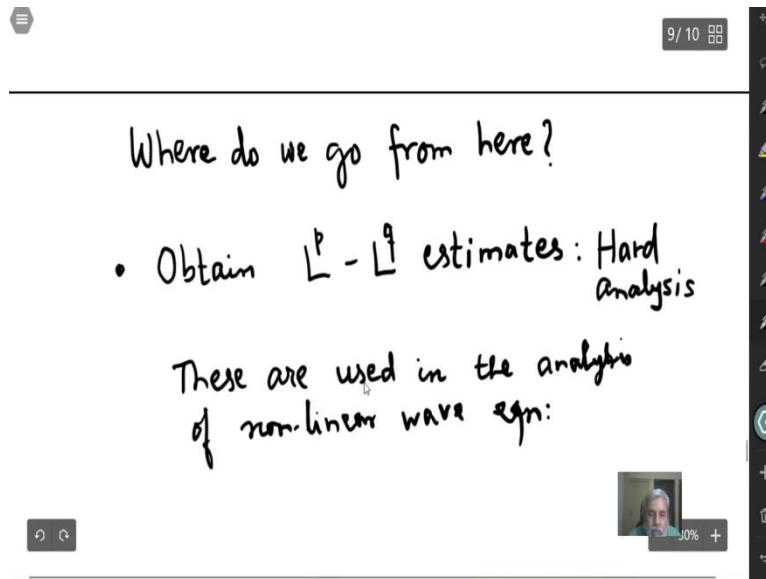 9/ 10
Where do we go from here?
• Obtain L^p - L^q estimates: Hard
analysis
These are used in the analysis
of non-linear wave eqn:
0% +